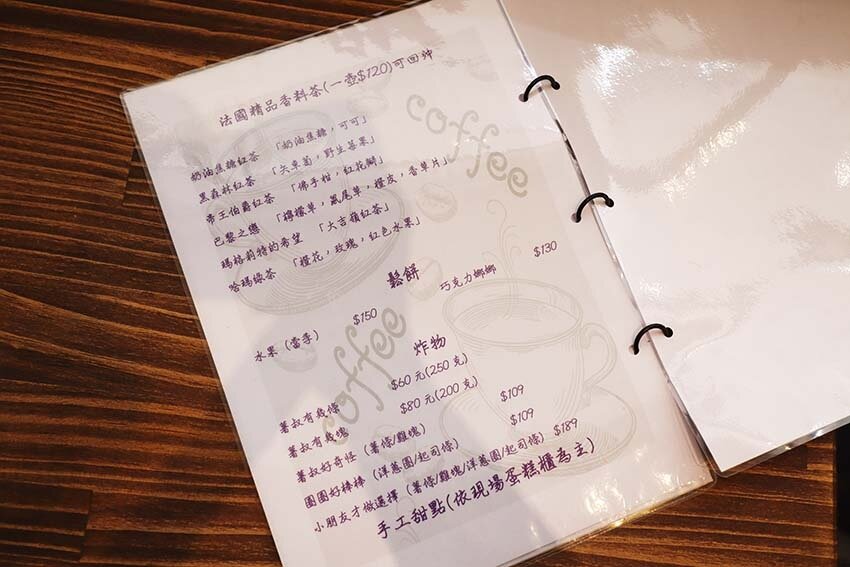 法國精品香料茶(一壺$120)可回沖
coffee
奶油焦糖紅茶 「奶油焦糖,可可」
黑森林紅茶 「矢車菊,野生莓果」
帝王伯爵紅茶 「佛手柑,紅花瓣」
巴黎之戀 「檸檬草,鼠尾草,橙皮,香草片」
瑪格莉特的希望 「大吉嶺紅茶」
哈瑪綠茶 「橙花,玫瑰,紅色水果」
鬆餅
水果(當季) $150 巧克力娜娜 $130
coffee
炸物
薯叔有幾條 $60元(250克)
薯叔有幾塊 $80元(200克)
薯叔好奇怪 (薯條/雞塊) $109
團團好棒棒 (洋蔥圈/起司條) $109
小朋友才做選擇 (薯條/雞塊/洋蔥圈/起司條) $189
手工甜點(依現場蛋糕櫃為主)